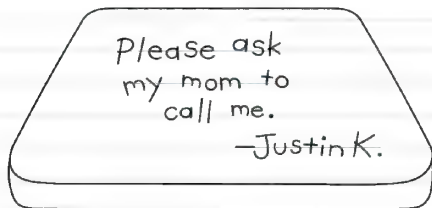 Please ask
my mom to
call me.
-Justin K.